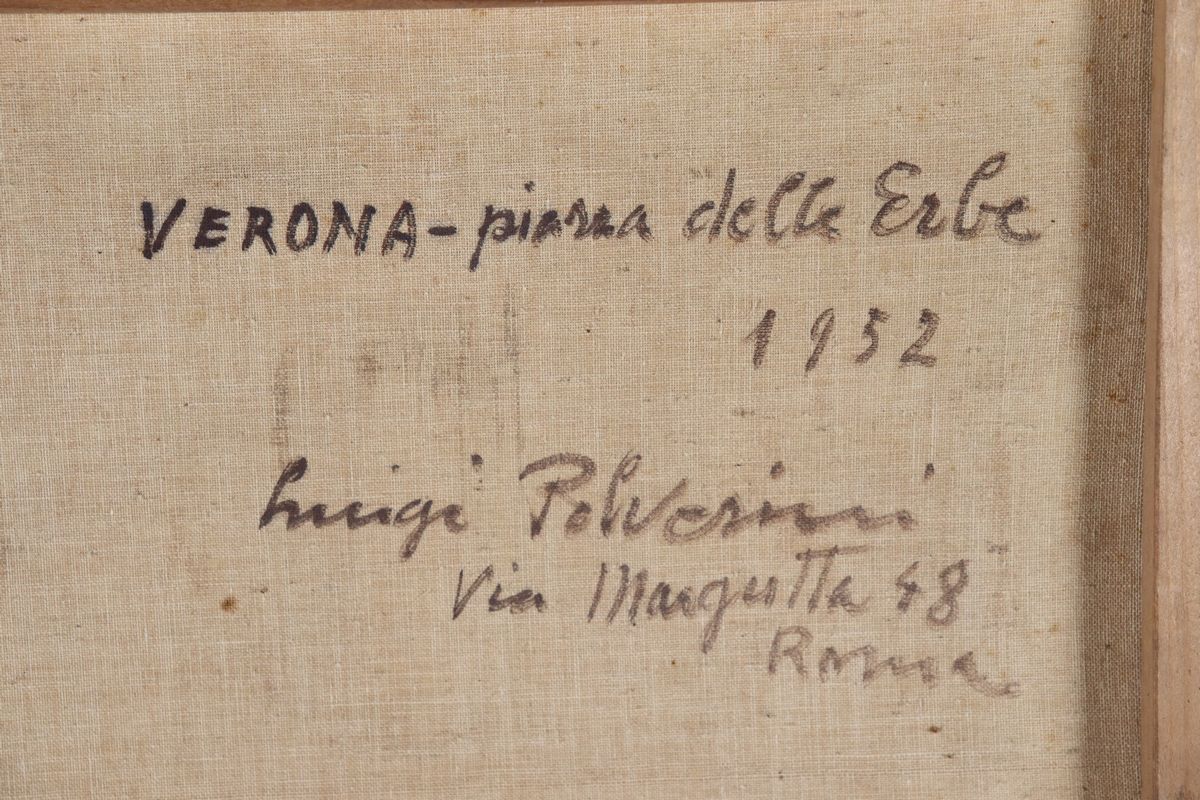 VERONA - piazza delle Erbe
1952
Luigi Polverini
Via Margutta 48
Roma